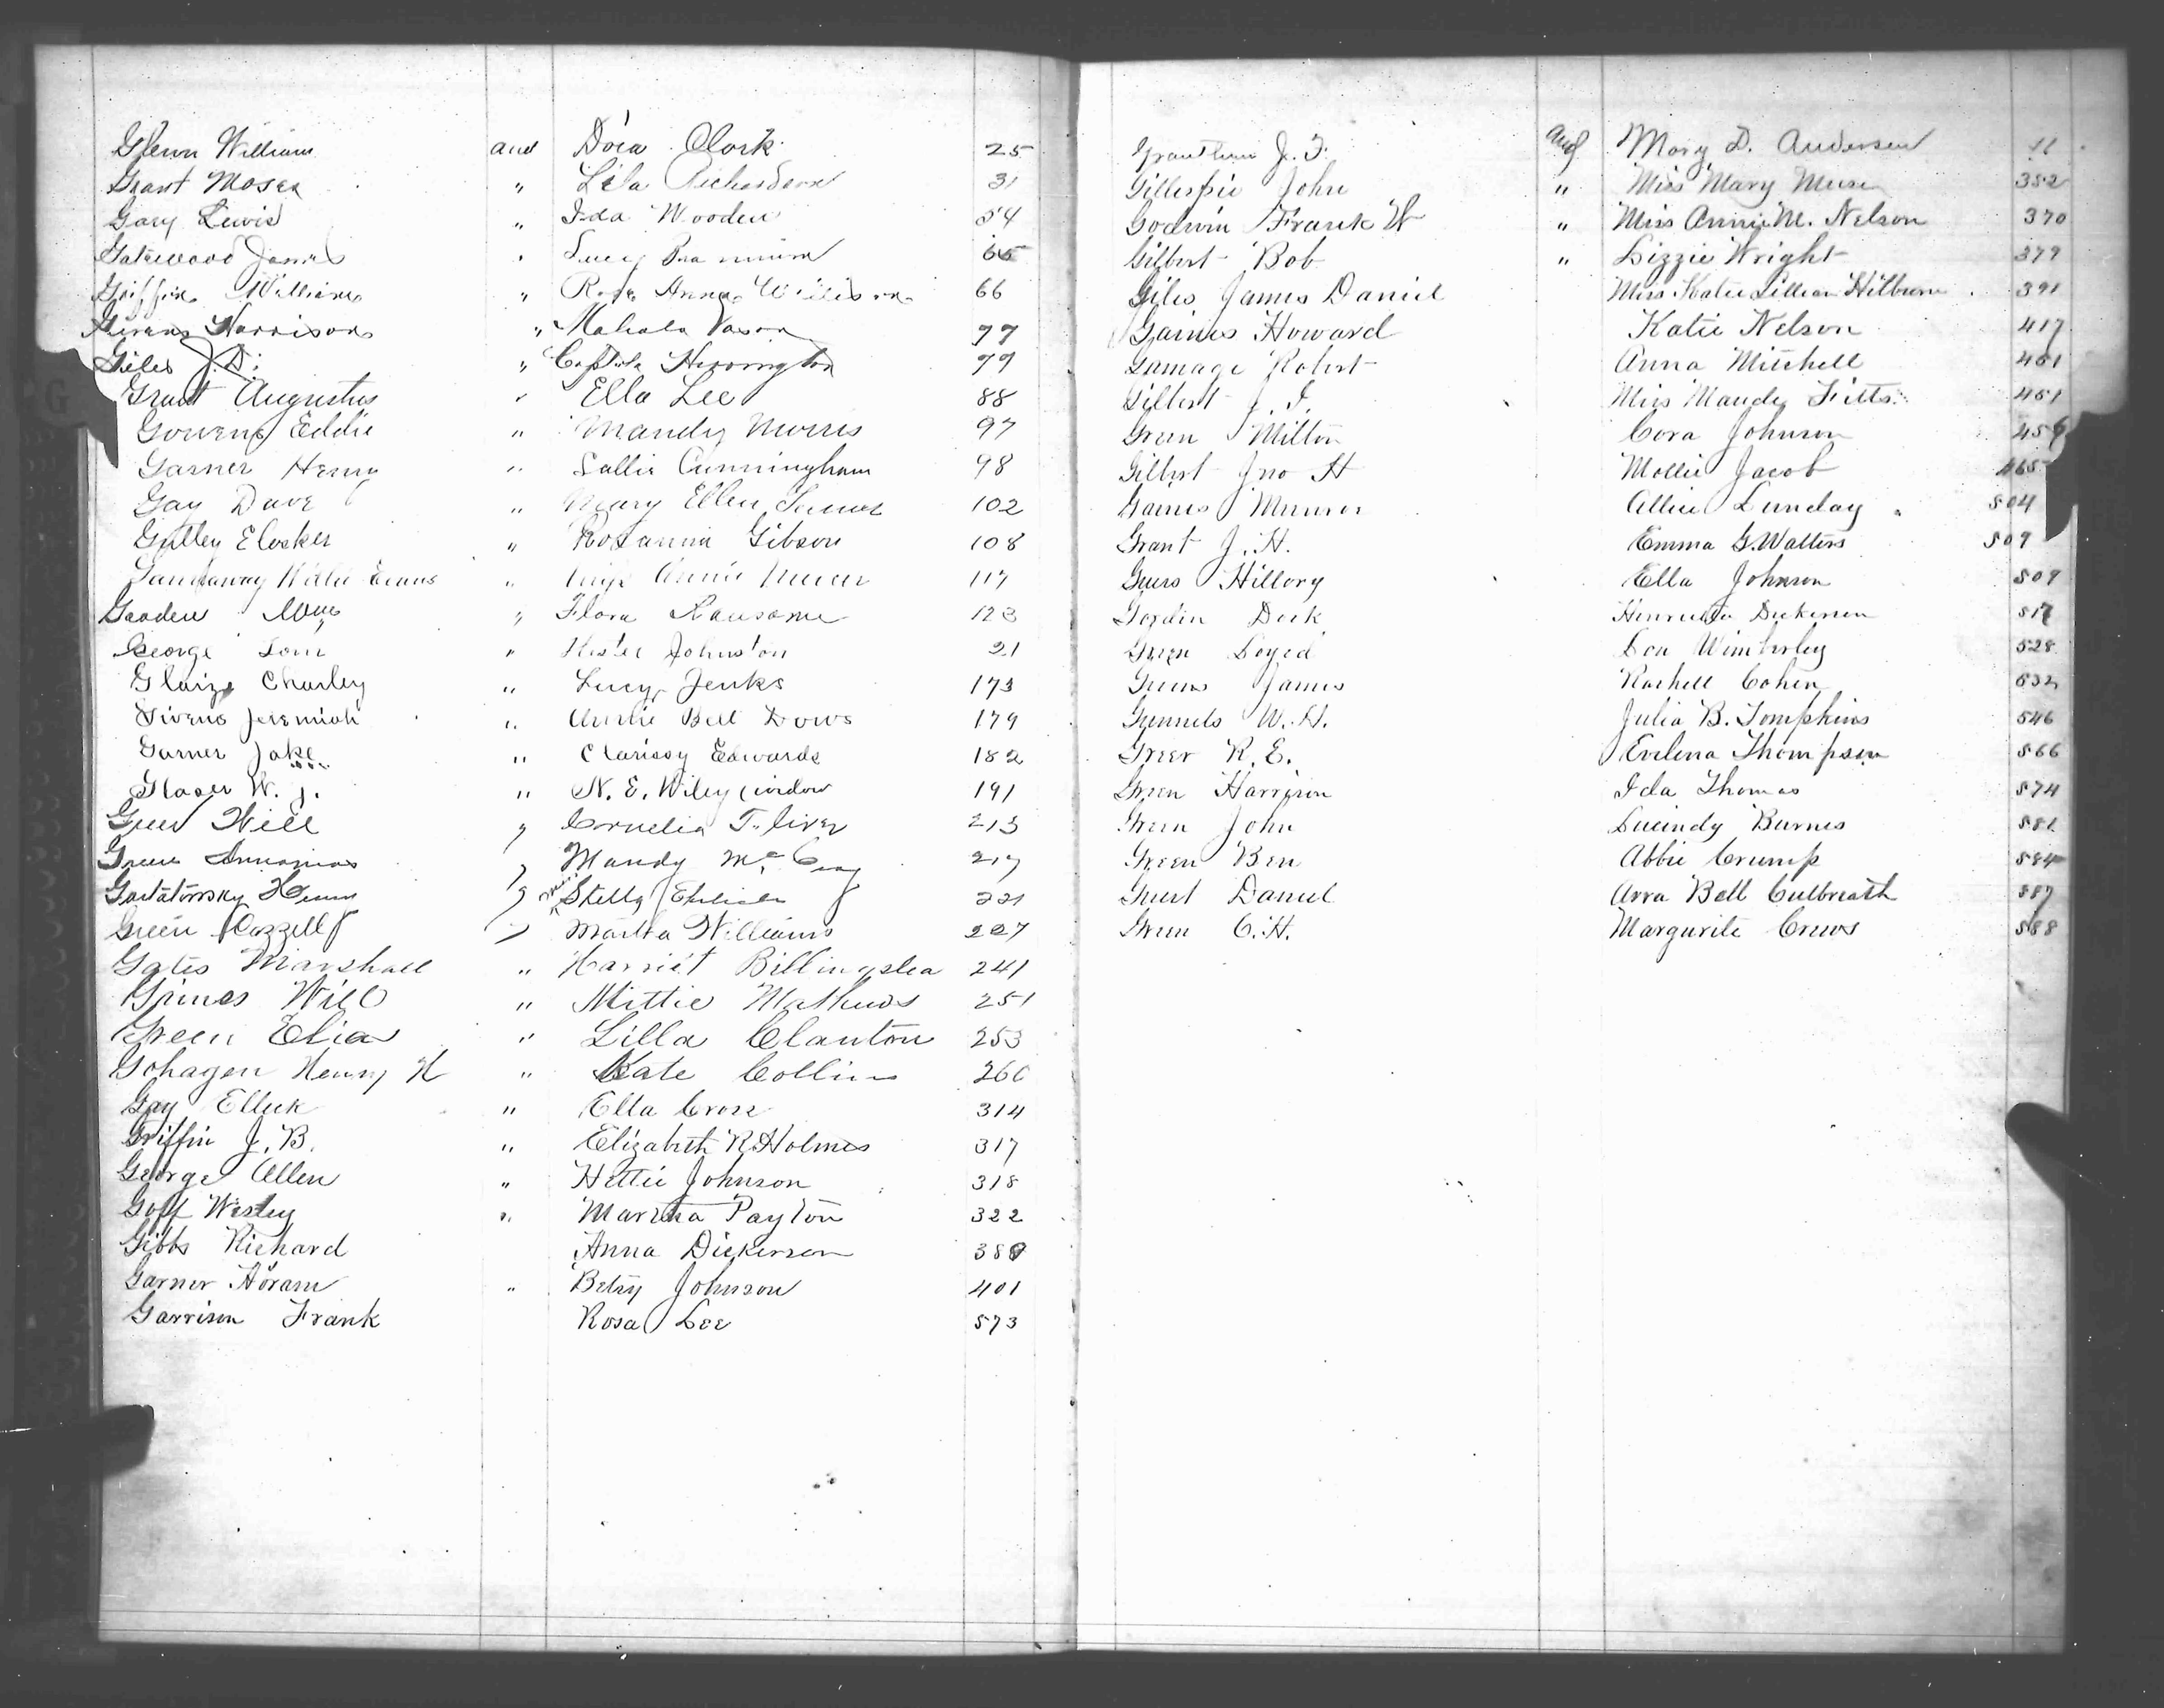 Glenn William and Dora Clark 25
Grant Moses " Lila Richardson 31
Gary Lewis " Ida Wooden 54
Gatewood James " Lucy 65
Griffin William " Rosa Anna 66
Givens Harrison " Mahala Vason 77
Giles J. D. " Herrington 79
Grant Augustus " Ella Lee 88
Gowens Eddie " Mandy Morris 97
Garner Henry " Sallie Cunningham 98
Gay Dave " Mary Ellen 102
Gulley " Rosanna Gibson 108
Willie Evans " Miss Annie 117
Gooden Wm " Flora Ransome 123
George Tom " Hester Johnston 21
Glaize Charley " Lucy Jenks 173
Givens Jeremiah " Bell Dows 179
Garner Jake " Clarissy Edwards 182
Glaser W. J. " N. E. Wiley widow 191
Will " Cornelia Toliver 213
Green Annanias " Mandy 217
" Stella 221
Green Cozzell " Martha Williams 227
Gates Marshall " Harriet Billingslea 241
Grimes Will " Mittie Mathews 251
Green Elia " Lilla Clanton 253
Gohagen Henry H " Kate Collins 266
Gay Elleck " Ella Cross 314
Griffin J. B. " Elizabeth R. Holmes 317
George Allen " Hettie Johnson 318
Goff Wesley " Martha Payton 322
Gibbs Richard Anna Dickerson 380
Garner Hiram " Betsy Johnson 401
Garrison Frank Rosa Lee 573
Grantham J. T. and Mary D. Anderson 11
Gillespie John " Miss Mary Muse 352
Godwin Frank W " Miss Annie M. Nelson 370
Gilbert Bob " Lizzie Wright 379
Giles James Daniel Miss Katie Lillian Hilburn 391
Gaines Howard Katie Nelson 417
Gamage Robert Anna Mitchell 451
Gilbert J. I. Miss Maude Fitts 451
Green Milton Cora Johnson 456
Gilbert Jno H Mollie Jacob 465
Gaines Munroe Allie Lunday 504
Grant J. H. Emma G. Walters 509
Hillory Ella Johnson 509
Gordin Dock Henrietta Dickerson 517
Green Loyed Lou Wimberley 528
James Rachell Cohen 532
Gunnels W. H. Julia B. Tompkins 546
Greer R. E. Evelena Thompson 566
Green Harrison Ida Thomas 574
Green John Lucindy Burnes 581
Green Ben Abbie Crump 584
Guest Daniel Arra Bell Culbreath 587
Green C. H. Margurite Crews 588